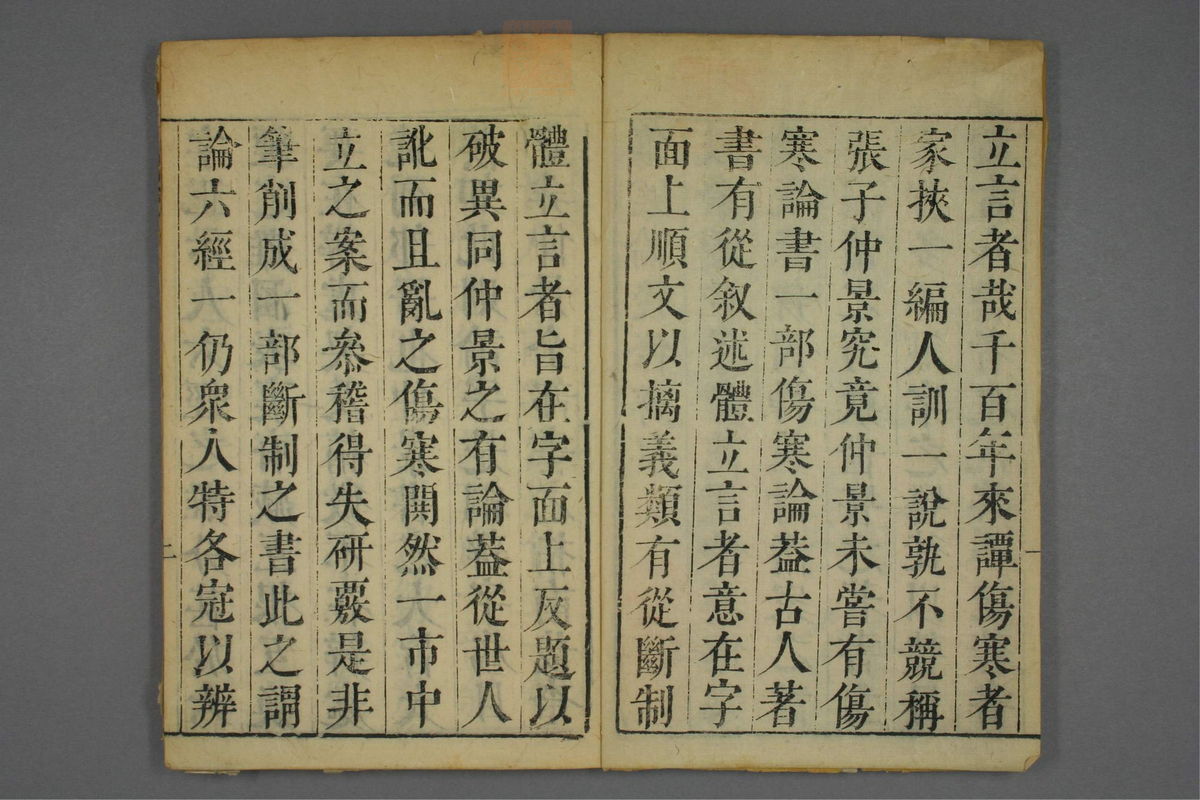 立言者哉千百年來譚傷寒者
家挾一編人訓一說孰不競稱
張子仲景究竟仲景未嘗有傷
寒論書一部傷寒論葢古人著
書有從叙述體立言者意在字
面上順文以摛義類有從斷制
體立言者旨在字面上反題以
破異同仲景之有論葢從世人
訛而且亂之傷寒閧然一市中
立之案而叅稽得失研覈是非
筆削成一部斷制之書此之謂
論六經一仍衆人特各冠以辨